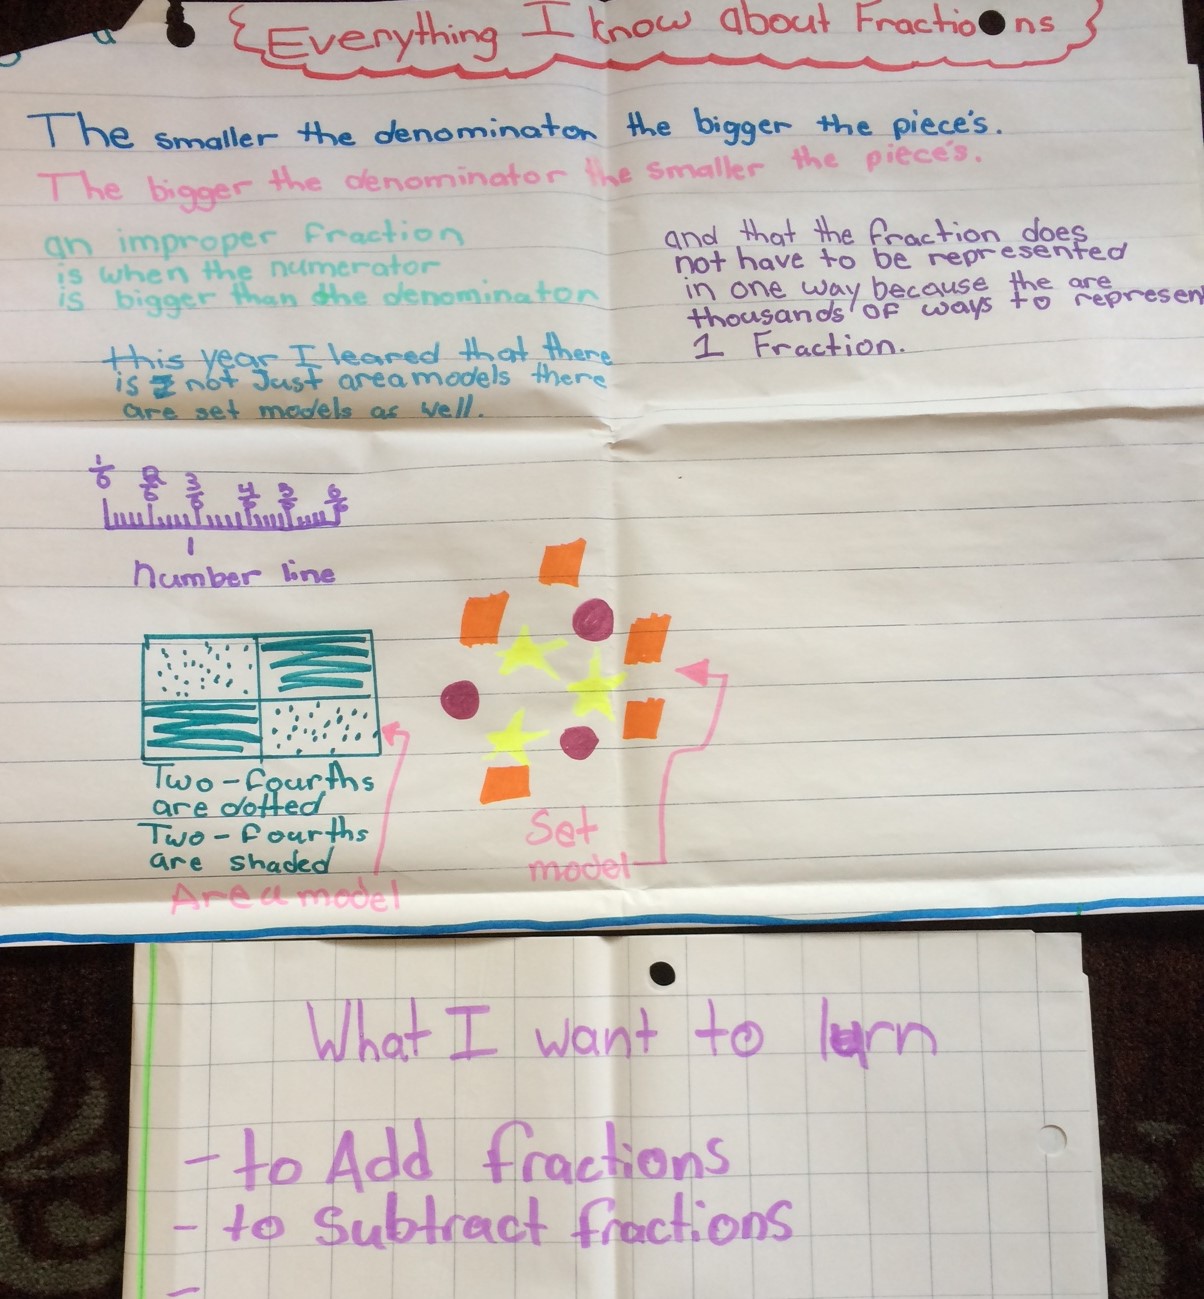 Everything I know about Fractions
The smaller the denominator the bigger the piece's.
The bigger the denominator the smaller the piece's.
an improper fraction
is when the numerator
is bigger than the denominator
this year I leared that there
is not Just area models there
are set models as well.
and that the fraction does
not have to be represented
in one way because the are
thousands of ways to represent
1 Fraction.
1/6 2/6 3/6 4/6 5/6 6/6
1
number line
Two-fourths
are dotted
Two-fourths
are shaded
Area model
Set
model
What I want to lurn
- to Add fractions
- to Subtract fractions
-